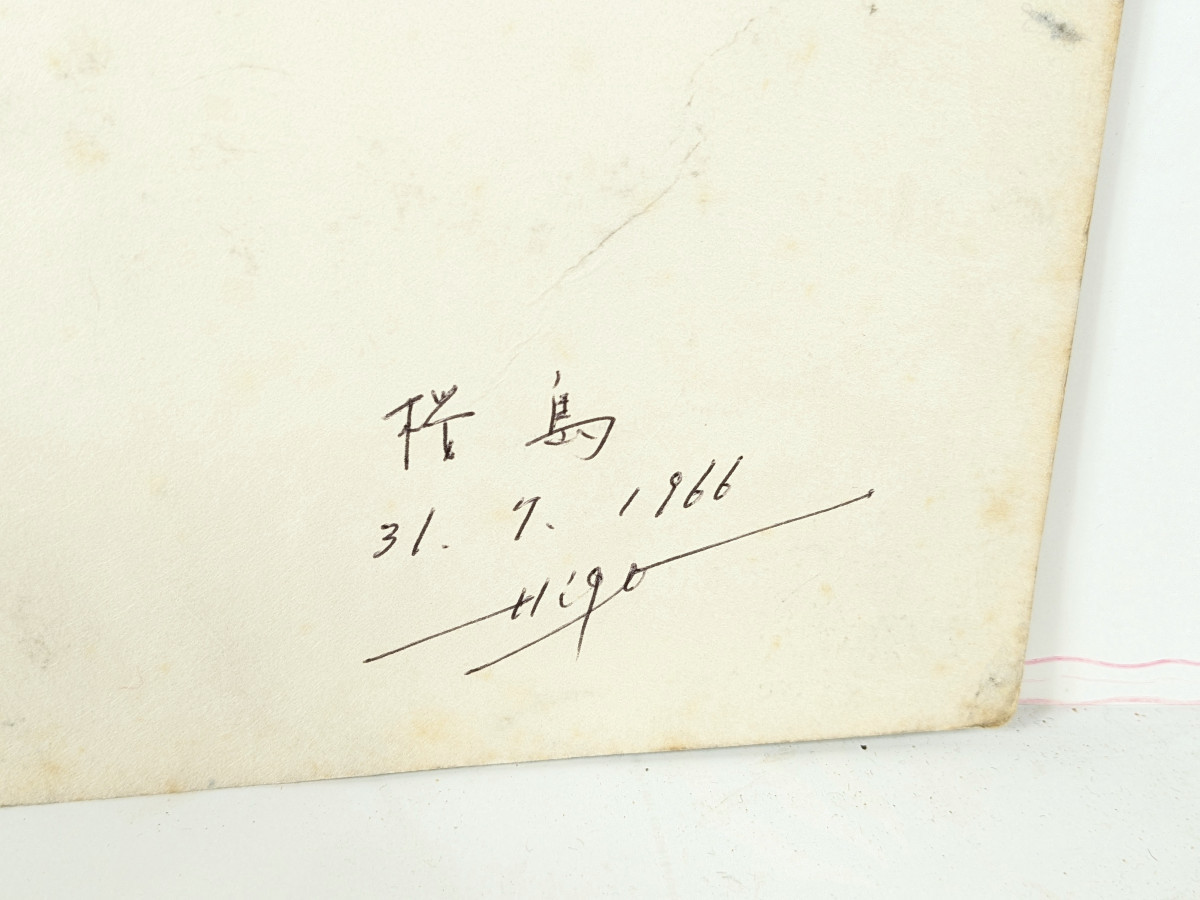 桜島
31. 7. 1966
Higo